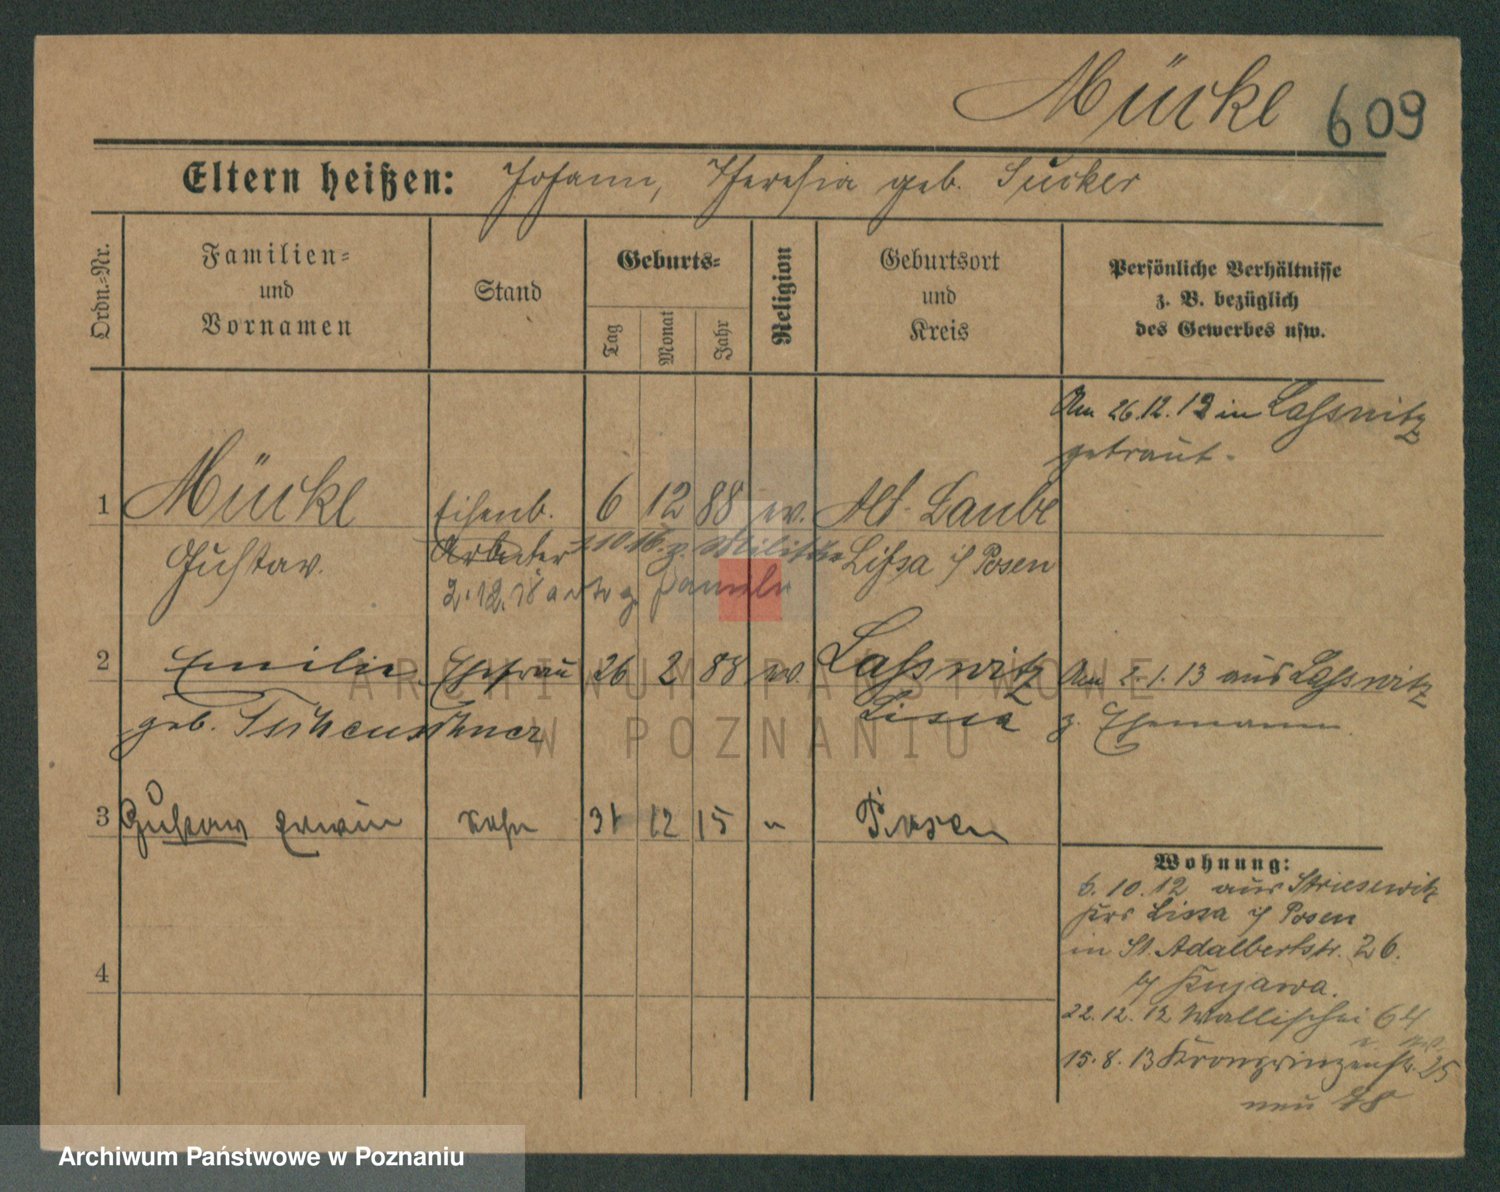 Mücke 609
Eltern heißen: Johann, Theresia geb. Sucker
Ordn.=Nr.
Familien=
und
Vornamen
Stand
Geburts=
Tag
Monat
Jahr
Religion
Geburtsort
und
Kreis
Persönliche Verhältnisse
z. B. bezüglich
des Gewerbes usw.
Am 26.12.12 in Lasswitz
getraut.
1 Mücke Eisenb. 6 12 88 ev. Alt Laube
Gustav. Arbeiter z. Militär Lissa i/ Posen
2.12.18 z. Familie
2 Emilie Ehefrau 26 2 88 ev. Lasswitz Am 2.1.13 aus Lasswitz
geb. Lissa z. Ehemann.
3 Gustav Erwin Sohn 31 12 15 " Posen
4
Wohnung:
6. 10. 12 aus Striesewitz
Krs Lissa i/ Posen
in St. Adalbertstr. 26.
b/ Kujawa.
22. 12. 12 Wallischei 64
15. 8. 13 Kronprinzenstr. 25
neu 78
ARCHIWUM PAŃSTWOWE
W POZNANIU
Archiwum Państwowe w Poznaniu